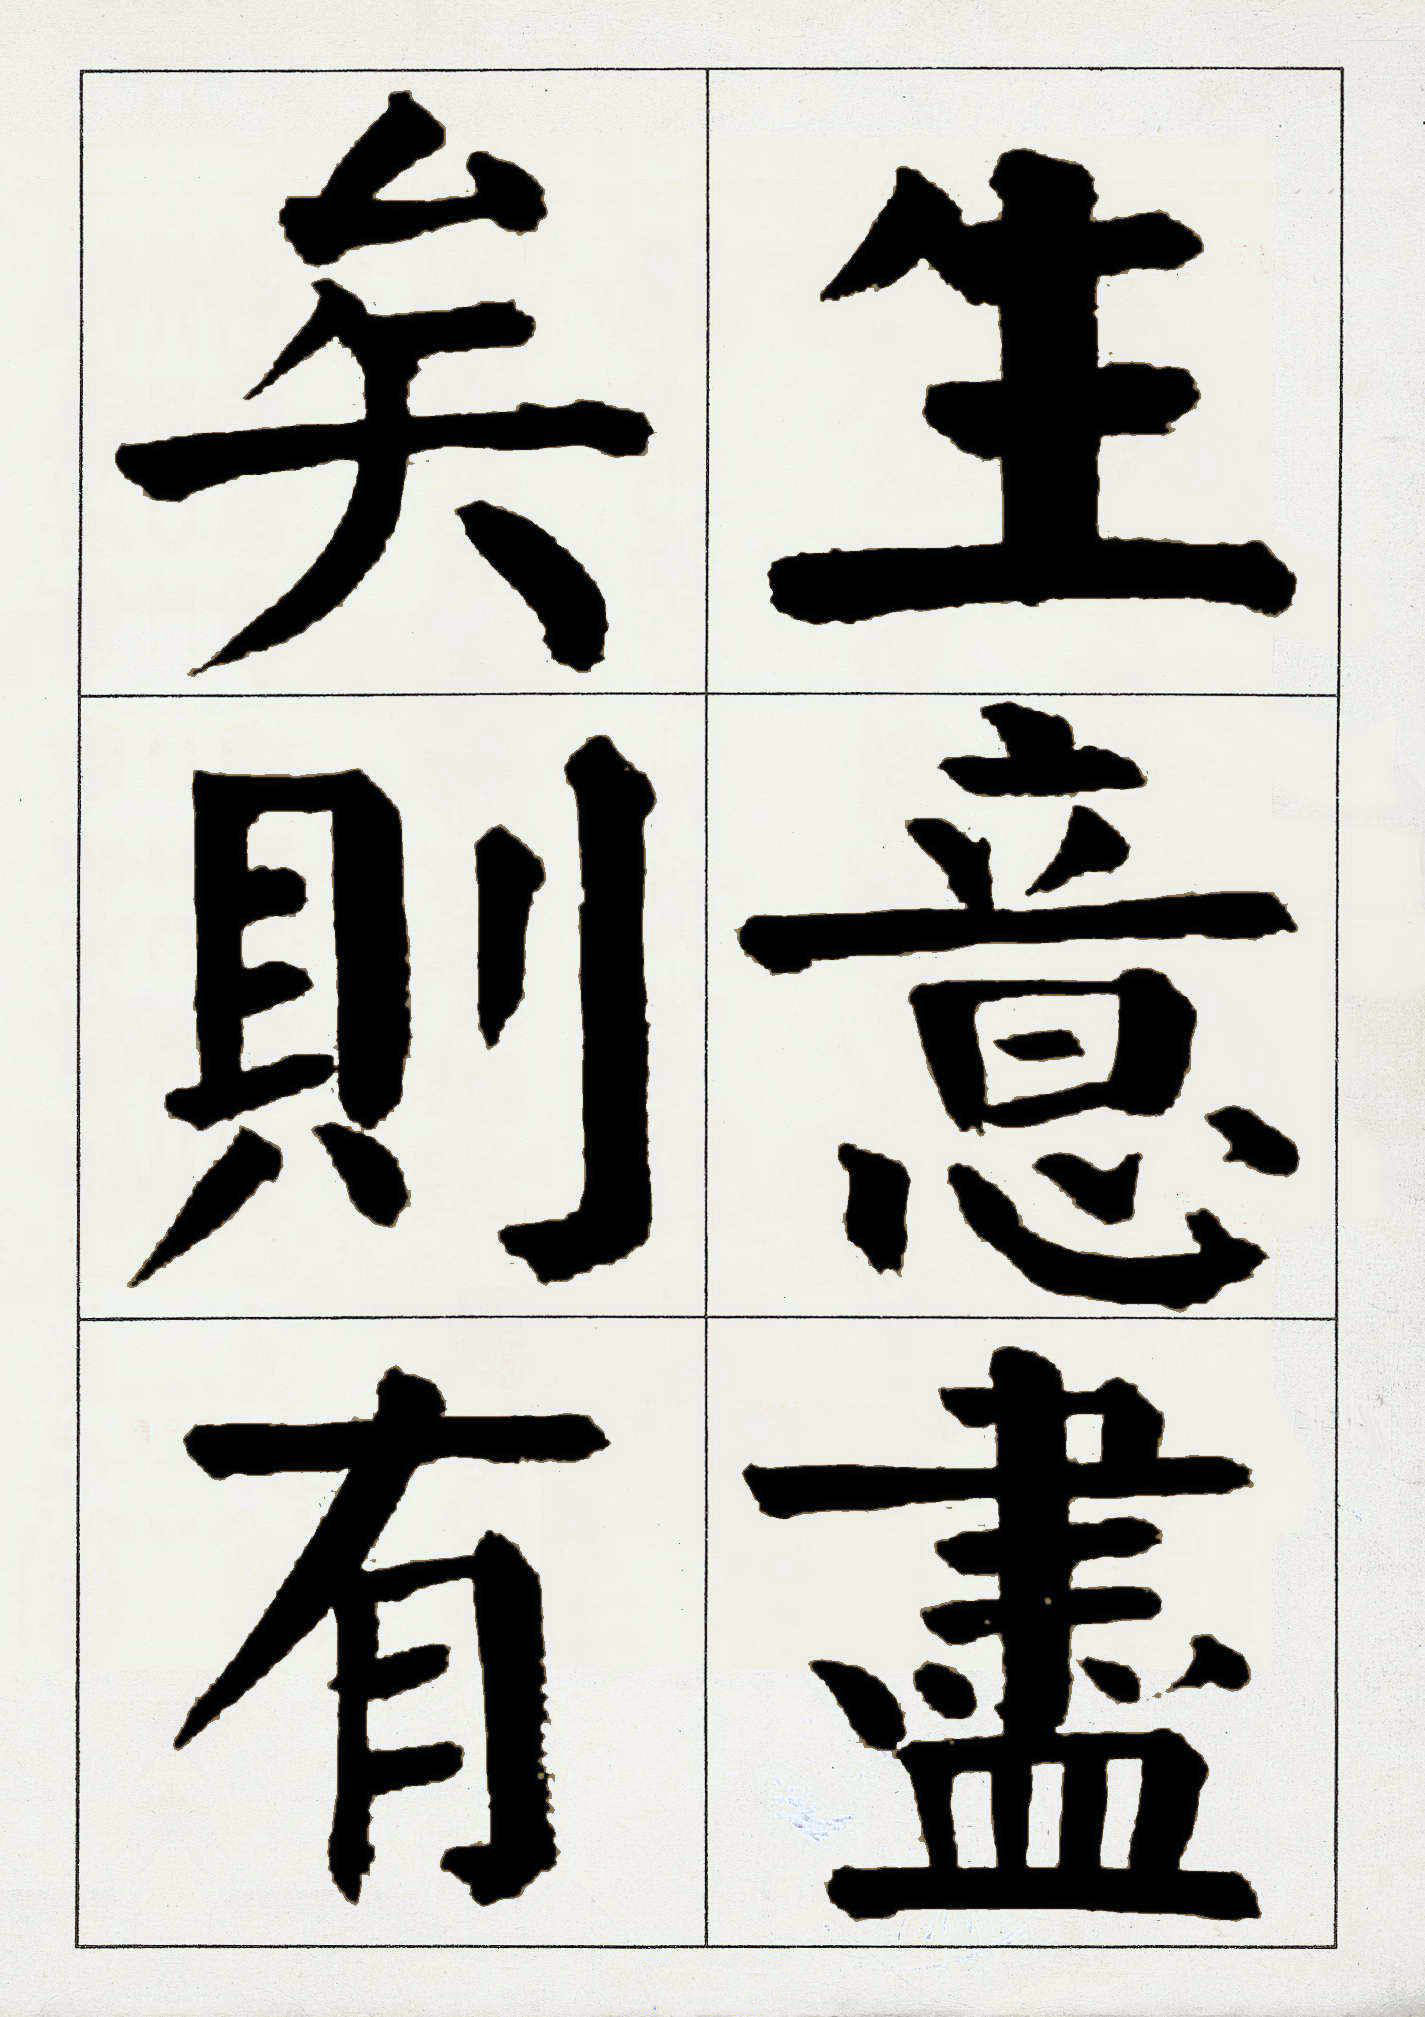 生意盡
矣則有